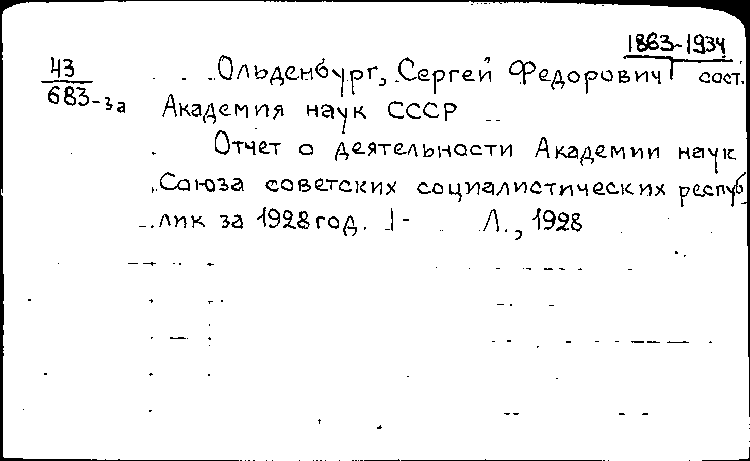 1863-1934
43 Ольденбург, Сергей Федорович сост.
683-3а Академия наук СССР
Отчет о деятельности Академии наук
Союза советских социалистических респуб
лик за 1928 год. I- Л., 1928